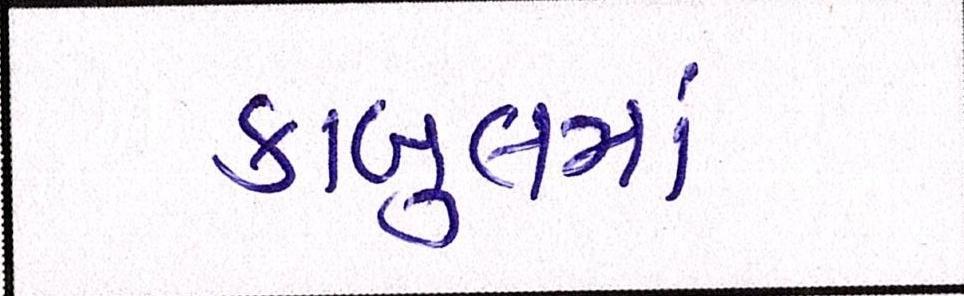 કાબુલમાં